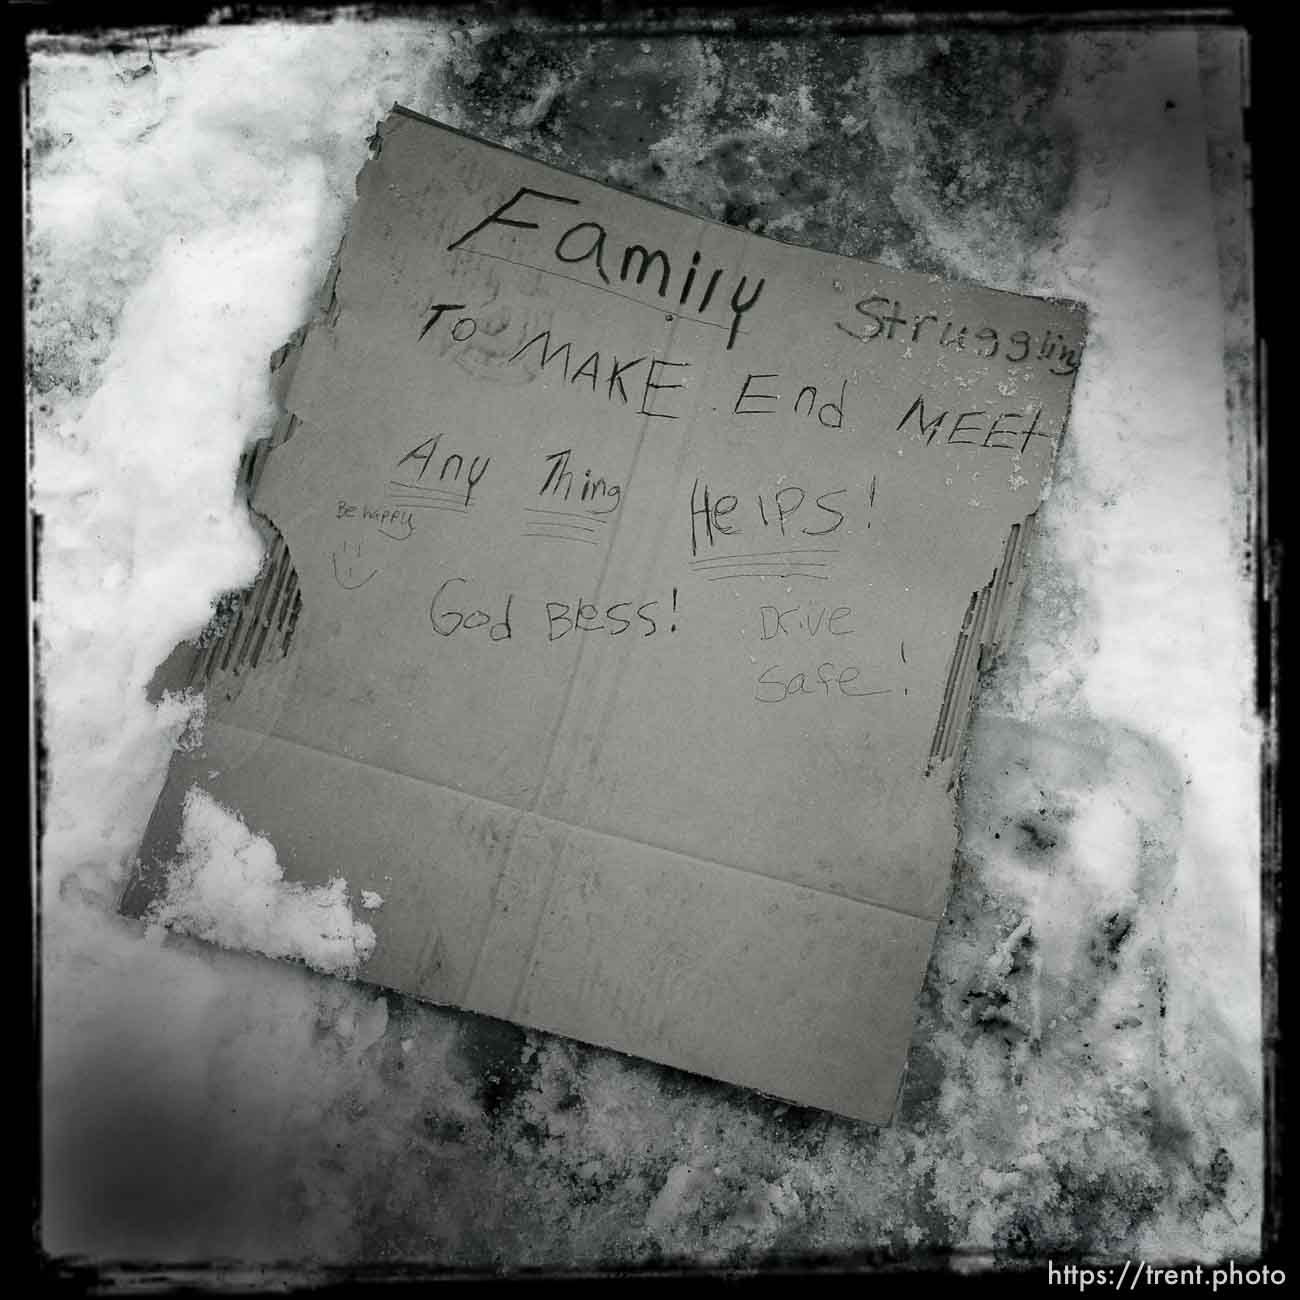 Family Struggling
To MAKE End MEET
Any Thing Helps!
Be happy
God Bless! Drive
Safe!
https://trent.photo